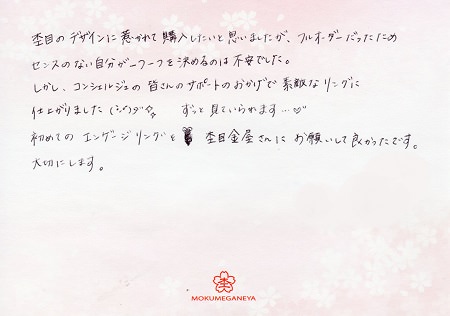 杢目のデザインに惹かれて購入したいと思いましたが、フルオーダーだったため
センスのない自分が一つ一つを決めるのは不安でした。
しかし、コンシェルジュの皆さんのサポートのおかげで素敵なリングに
仕上がりました(^^)ダ☆☆ ずっと見ていられます…♡
初めてのエンゲージリングを 杢目金屋さんにお願いして良かったです。
大切にします。
MOKUMEGANEYA